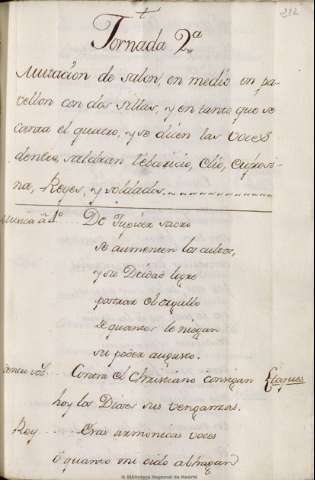 212
Jornada 2ª
Mutacion de salon, en medio un pa-
vellon con dos sillas, y en tanto que se
canta el quatro, y se dicen las voces
dentro, saldran Felisicio, Clio, Eufrosi-
na, Reyes, y soldados.
Musica á 4º De Jupiter sacro
se aumenten los cultos,
y su Deidad logre
postrar el orgullo
de quantos le niegan
su poder augusto.
Dentro voz. Contra el Christiano consigan
hoy los Dioses sus venganzas.
Rey Esas armonicas voces
ó quanto mi oido alhagan
© Biblioteca Regional de Madrid